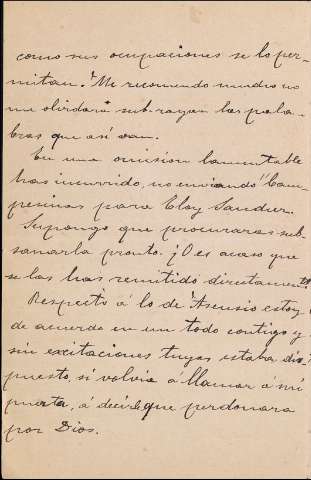 como sus ocupaciones se lo per-
mitan. Me recomendo mucho no
me olvidara subrayar las pala-
bras que así van.
En una omision lamentable
has incurrido, no enviando "Cam-
pesinas para Eloy Sanduer.
Supongo que procuraras sub-
sanarla pronto. ¡O es acaso que
se las has remitido directamente
Respecto á lo de Asensio estoy
de acuerdo en un todo contigo y
sin excitaciones tuyas estaba dis-
puesto, si volvia á llamar á mi
puerta, á decirle que perdonara
por Dios.